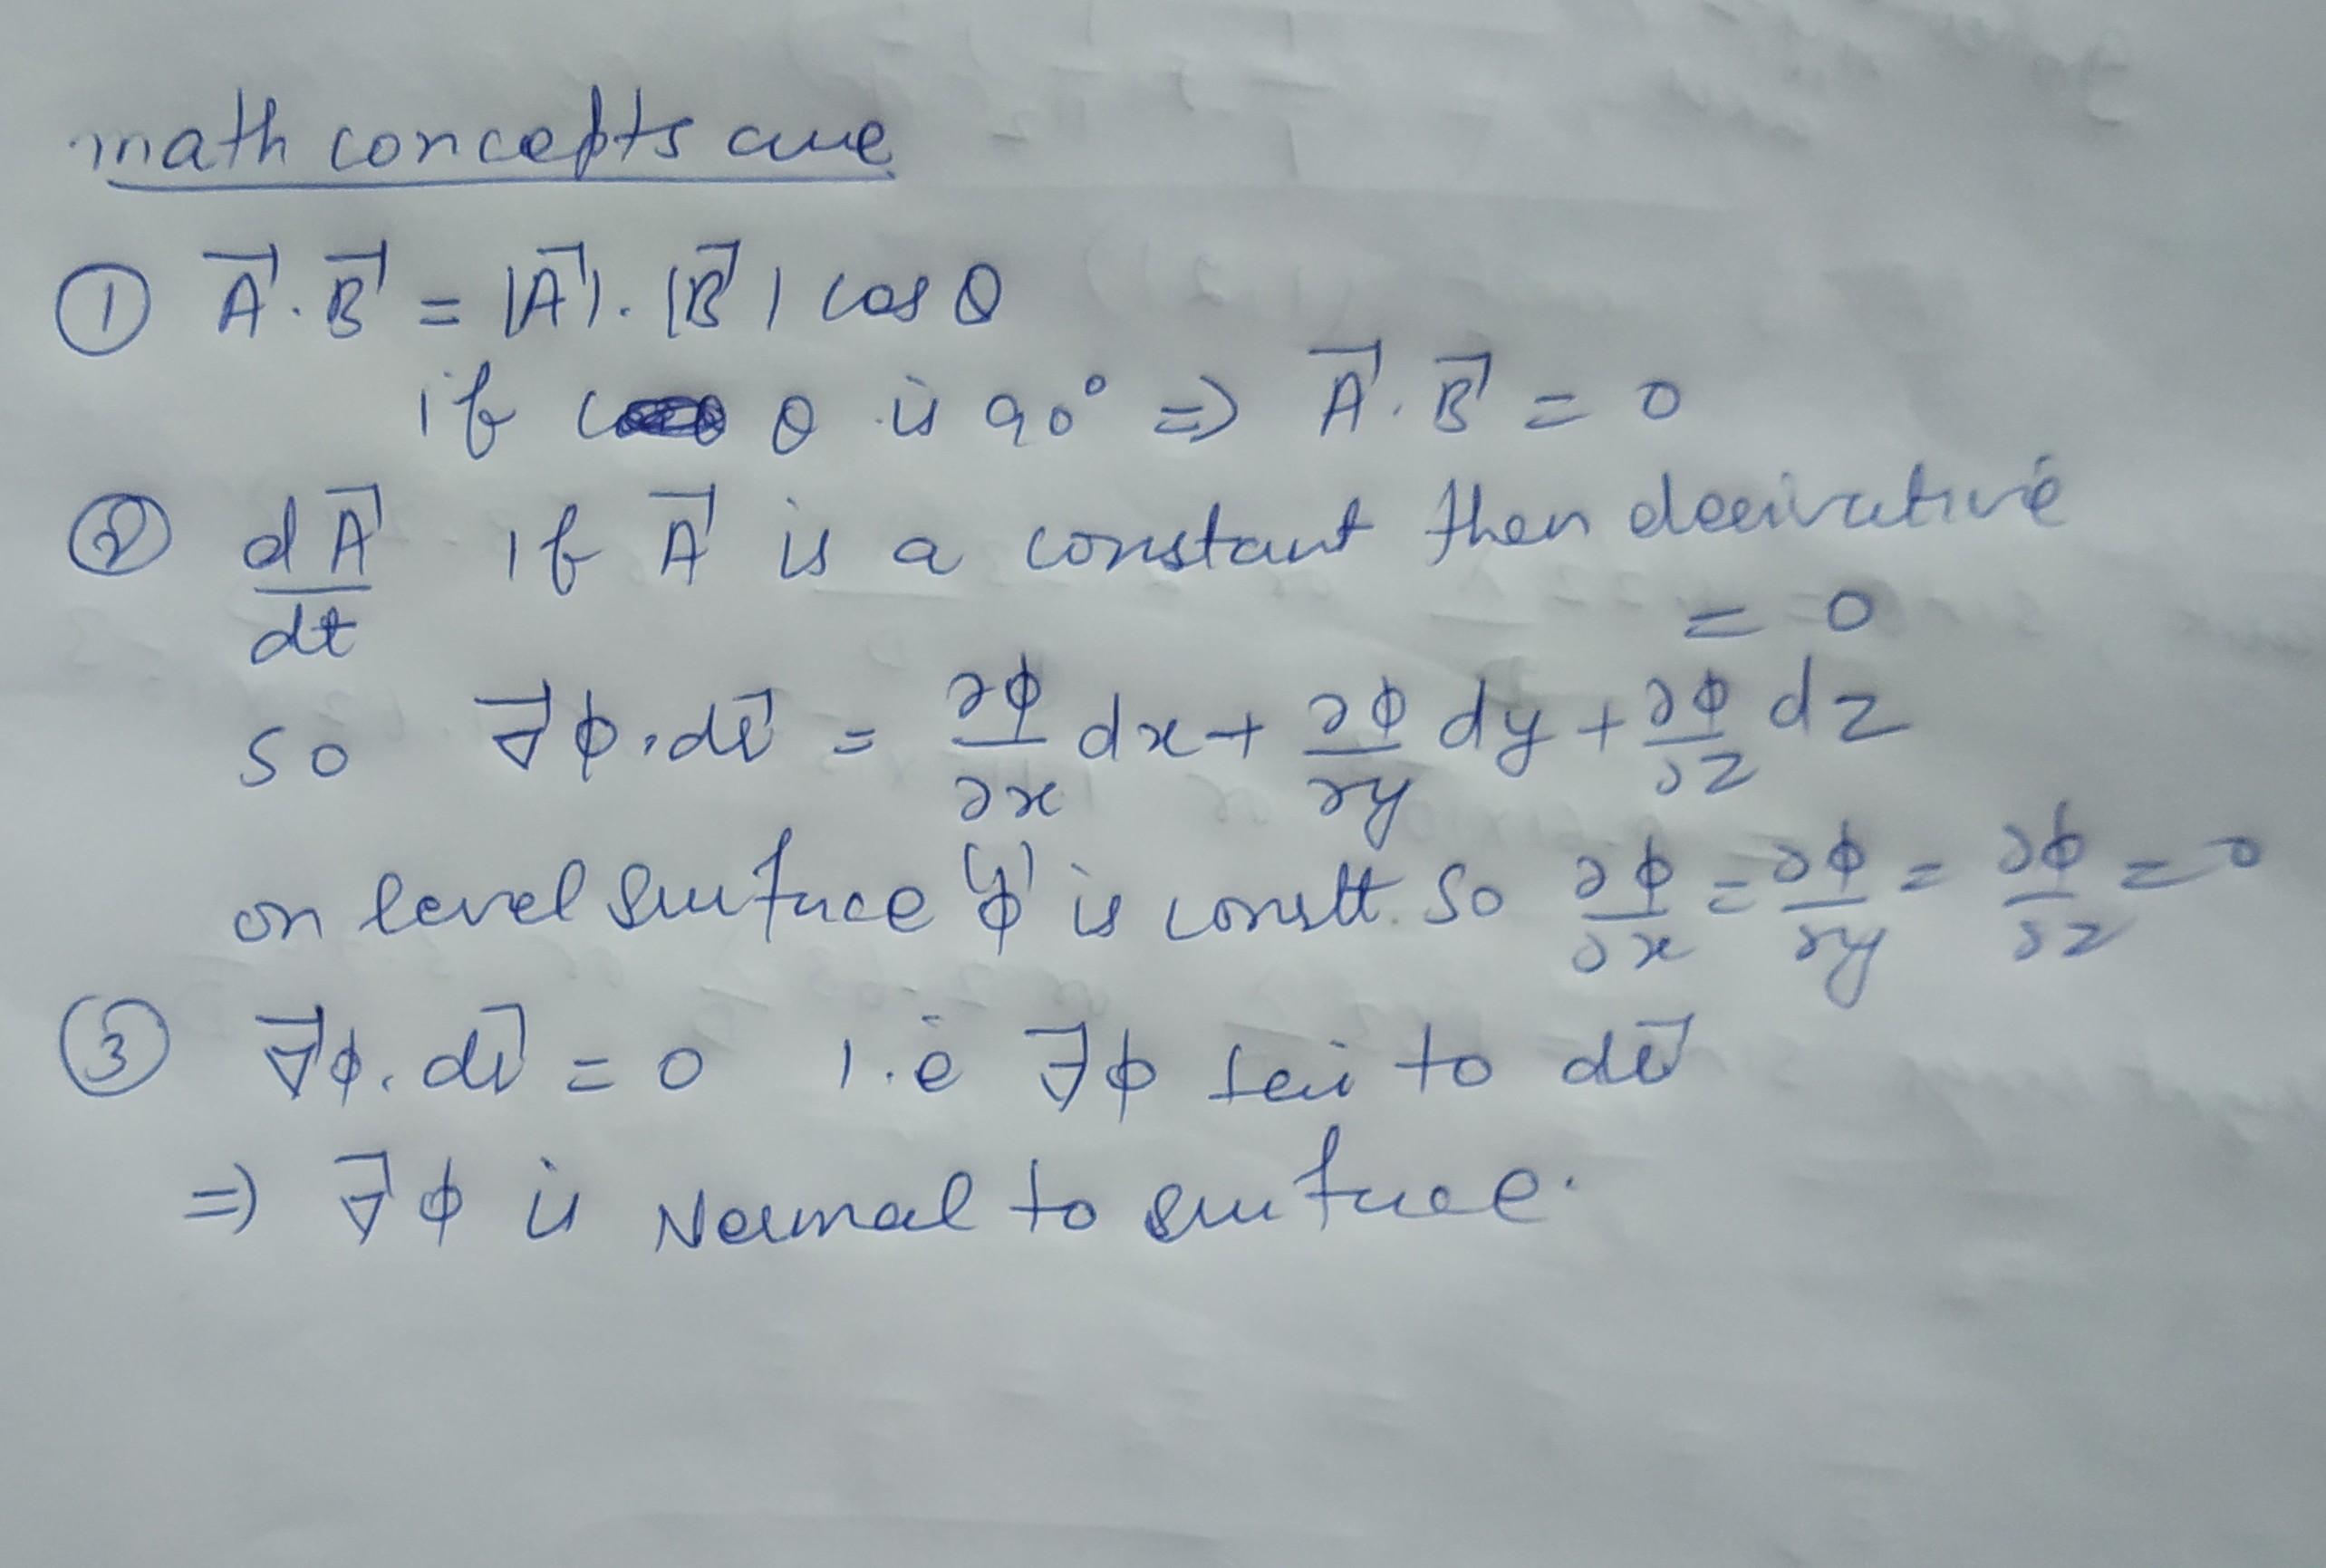 math concepts are
① A⃗ . B⃗ = |A⃗| . |B⃗| cos θ
if θ is 90° => A⃗ . B⃗ = 0
② dA⃗/dt If A⃗ is a constant then derivative
= 0
so ∇⃗ϕ . dr⃗ = ∂ϕ/∂x dx + ∂ϕ/∂y dy + ∂ϕ/∂z dz
on level surface 'ϕ' is constt. So ∂ϕ/∂x = ∂ϕ/∂y = ∂ϕ/∂z = 0
③ ∇⃗ϕ . dr⃗ = 0 i.e ∇⃗ϕ to dr⃗
=> ∇⃗ϕ is Normal to surface.